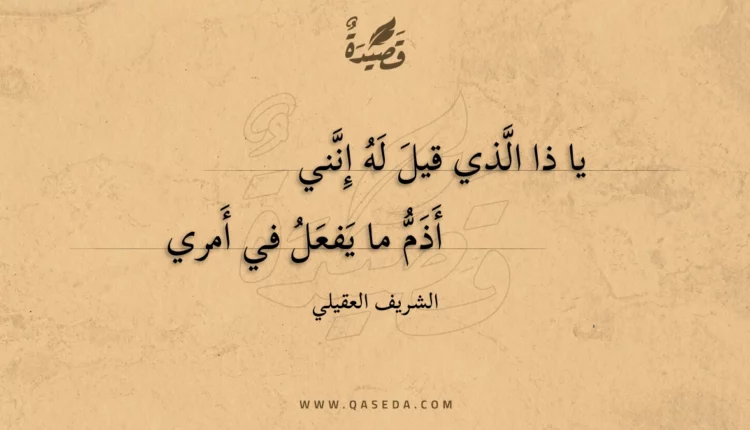 قَصِيْدَةٌ
يا ذا الَّذي قيلَ لَهُ إِنَّني
أَذَمُّ ما يَفعَلُ في أَمري
الشريف العقيلي
WWW.QASEDA.COM